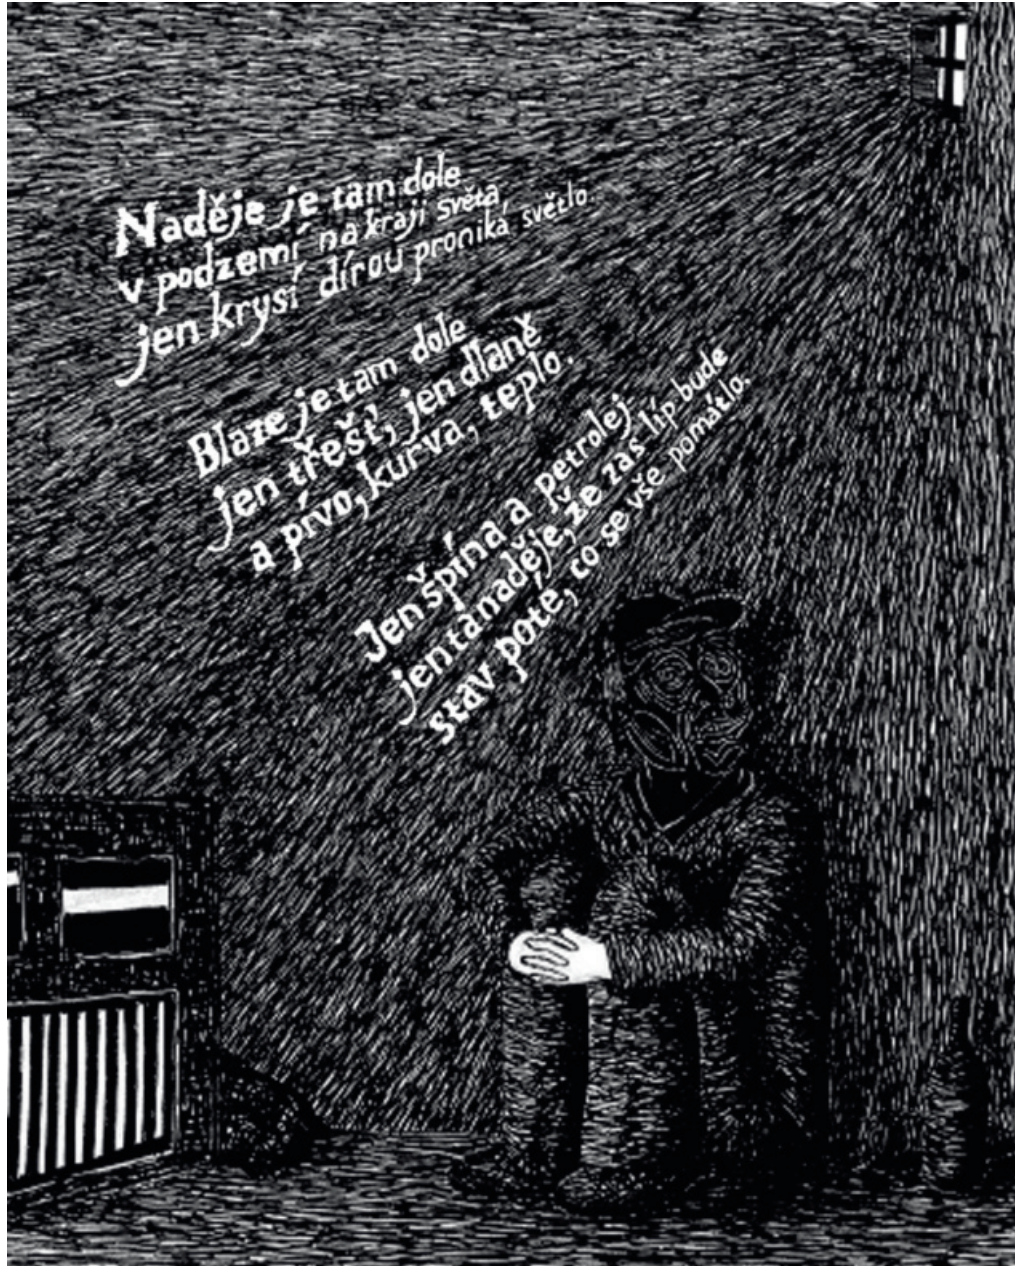 Naděje je tam dole
v podzemí na kraji světa,
jen krysí dírou proniká světlo.
Blaze je tam dole
jen třešť, jen dlaně
a pívo, kurva, teplo.
Jen špína a petrolej
jen ta naděje, že zas líp bude
stav poté, co se vše pomátlo.